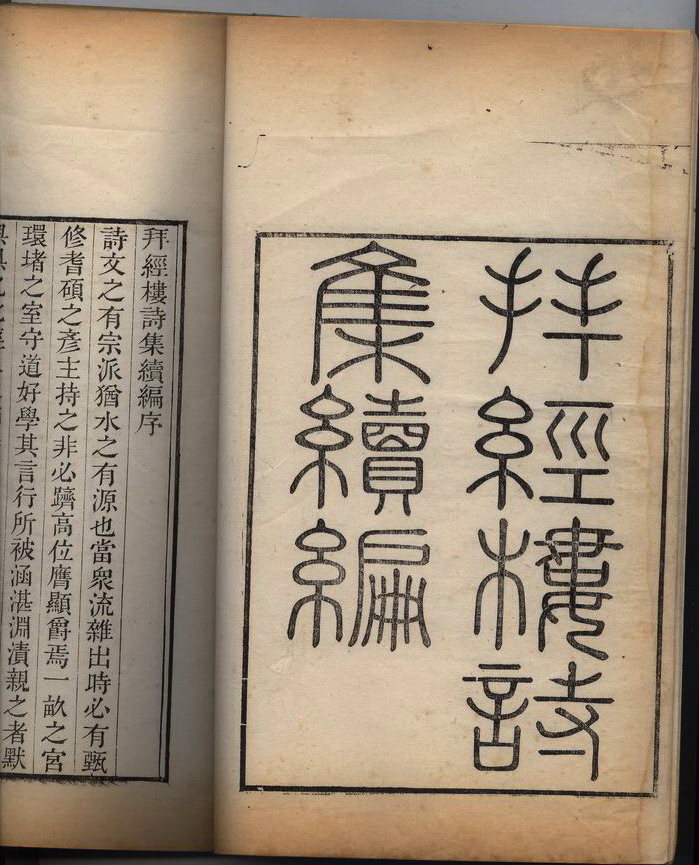 拜經樓詩
集續編
拜經樓詩集續編序
詩文之有宗派猶水之有源也當衆流雜出時必有甄
修耆碩之彥主持之非必躋高位膺顯爵焉一畝之宮
環堵之室守道好學其言行所被涵湛淵漬親之者默